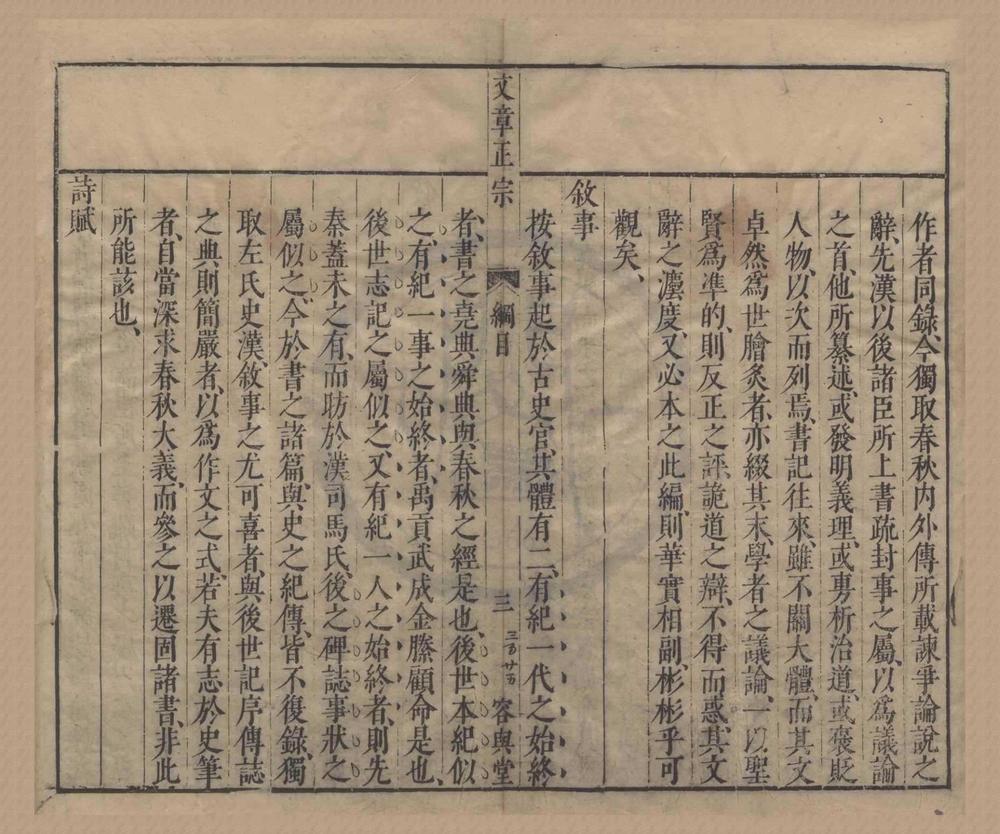 作者同錄、今獨取春秋內外傳所載諫爭論說之
辭、先漢以後諸臣所上書疏封事之屬、以爲議論
之首、他所纂述、或發明義理、或専析治道、或褒貶
人物、以次而列焉、書記往來、雖不關大體、而其文
卓然爲世膾炙者、亦綴其末、學者之議論、一以聖
賢爲準的、則反正之評、詭道之辯、不得而惑、其文
辭之灋度、又必本之此編、則華實相副、彬彬乎可
觀矣、
敘事
按敘事起於古史官、其體有二、有紀一代之始終
文章正宗
綱目
三
三百廿五
容與堂
者、書之堯典舜典與春秋之經是也、後世本紀似
之、有紀一事之始終者、禹貢武成金縢顧命是也、
後世志記之屬似之、又有紀一人之始終者、則先
秦蓋未之有、而昉於漢司馬氏、後之碑誌事狀之
屬似之、今於書之諸篇、與史之紀傳、皆不復錄、獨
取左氏史漢、敘事之尤可喜者、與後世記序傳誌
之典則簡嚴者、以爲作文之式、若夫有志於史筆
者、自當深求春秋大義、而參之以遷固諸書、非此
所能該也、
詩賦